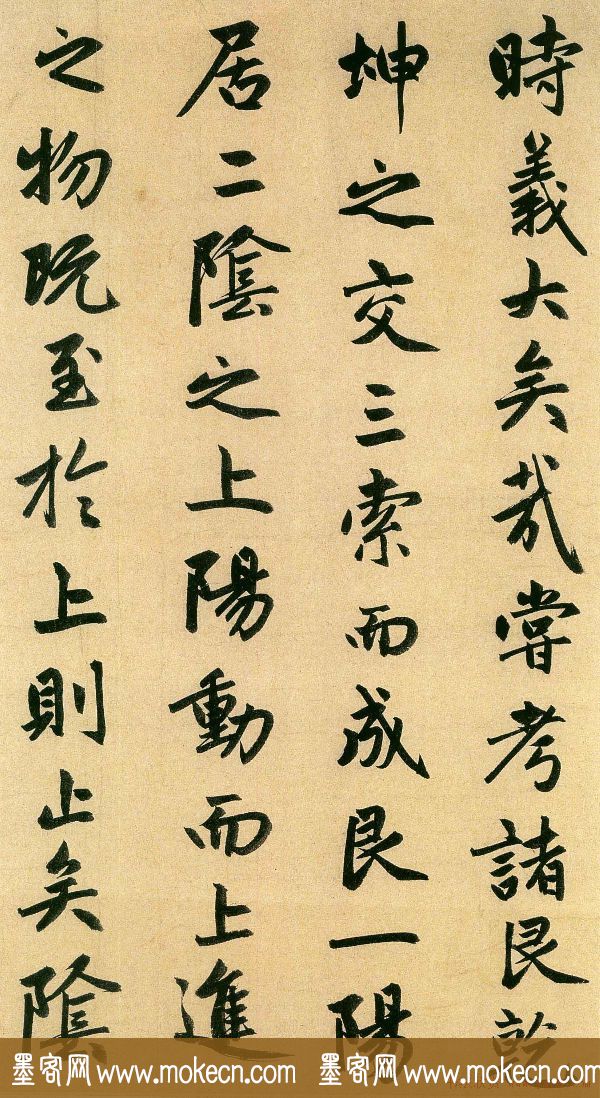 時義大矣哉嘗考諸艮乾
坤之交三索而成艮一陽
居二陰之上陽動而上進
之物既至於上則止矣陰
墨客网 www.mokecn.com 墨客网 www.mokecn.com